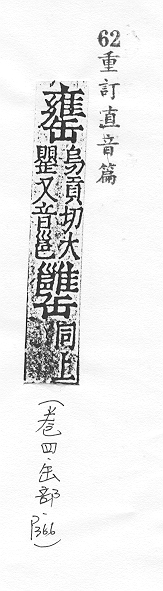 62重訂直音篇
罋烏貢切大
罌又音邕𦉥同上
(卷四.缶部.P366)